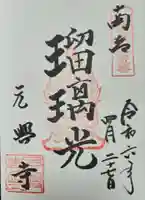 奉拝
瑠璃光
元興寺
令和六年
四月二十七日